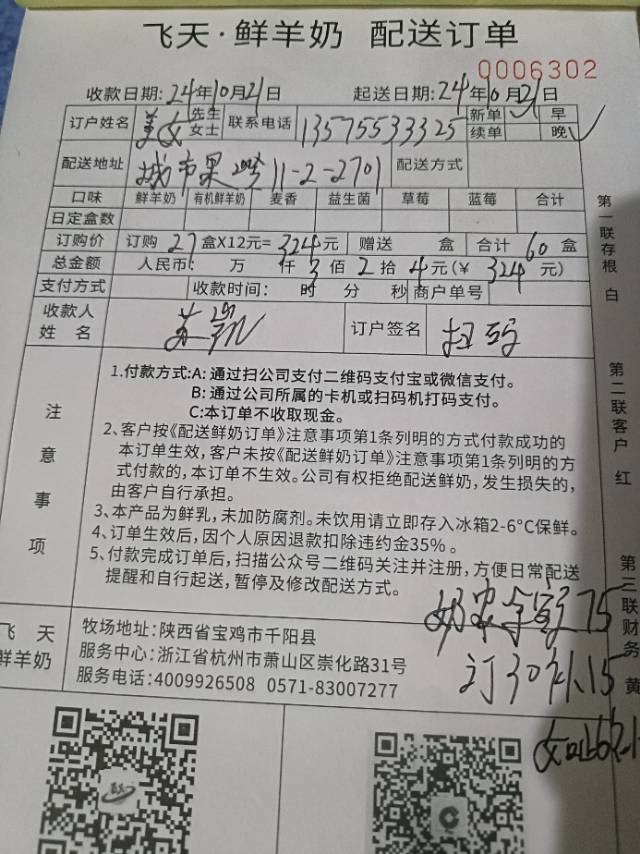 飞天·鲜羊奶 配送订单
0006302
收款日期:24年10月21日 起送日期:24年10月21日
订户姓名 先生 女士 联系电话 13575533325 新单 早
续单 晚
配送地址 城市果岭 11-2-2701 配送方式
口味 鲜羊奶 有机鲜羊奶 麦香 益生菌 草莓 蓝莓 合计
日定盒数
订购价 订购27盒X12元=324元 赠送 盒 合计60盒
总金额 人民币: 万 仟3佰2拾4元(¥ 324元)
支付方式 收款时间: 时 分 秒 商户单号
收款人姓名 订户签名 扫码
注意事项
1.付款方式:A: 通过扫公司支付二维码支付宝或微信支付。
B: 通过公司所属的卡机或扫码机打码支付。
C:本订单不收取现金。
2、客户按《配送鲜奶订单》注意事项第1条列明的方式付款成功的
本订单生效，客户未按《配送鲜奶订单》注意事项第1条列明的方
式付款的，本订单不生效。公司有权拒绝配送鲜奶，发生损失的，
由客户自行承担。
3、本产品为鲜乳，未加防腐剂。未饮用请立即存入冰箱2-6°C保鲜。
4、订单生效后，因个人原因退款扣除违约金35% 。
5、付款完成订单后，扫描公众号二维码关注并注册，方便日常配送
提醒和自行起送，暂停及修改配送方式。
飞天
鲜羊奶
牧场地址:陕西省宝鸡市千阳县
服务中心:浙江省杭州市萧山区崇化路31号
服务电话:4009926508 0571-83007277
75
订30补15
第一联存根 白
第二联客户 红
第三联财务 黄